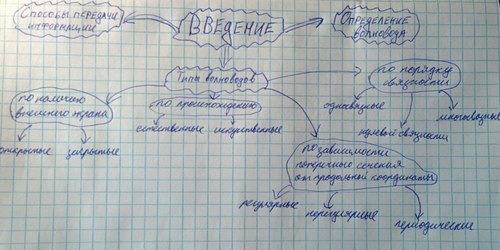 Способы передачи
информации
Введение
Определение
волновода
Типы волноводов
по порядку
связности
по наличию
внешнего экрана
по происхождению
односвязные
многосвязные
нулевой связности
естественные
искусственные
открытые
закрытые
по зависимости
поперечные сечения
от продольной координаты
регулярные
нерегулярные
периодические